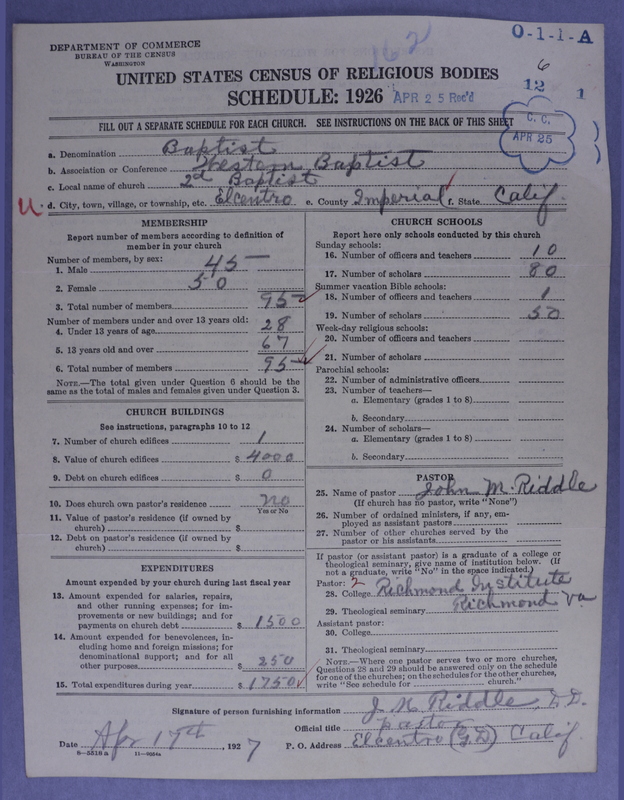 DEPARTMENT OF COMMERCE
BUREAU OF THE CENSUS
WASHINGTON
162
O-1-1-A
6
12 1
UNITED STATES CENSUS OF RELIGIOUS BODIES
SCHEDULE: 1926
APR 25 Rec'd
C. C.
APR 25
FILL OUT A SEPARATE SCHEDULE FOR EACH CHURCH. SEE INSTRUCTIONS ON THE BACK OF THIS SHEET
a. Denomination Baptist
b. Association or Conference Western Baptist
c. Local name of church 2d Baptist
U d. City, town, village, or township, etc. Elcentro e. County Imperial f. State Calif
MEMBERSHIP
Report number of members according to definition of
member in your church
Number of members, by sex:
1. Male 45
2. Female 50
3. Total number of members 95
Number of members under and over 13 years old:
4. Under 13 years of age 28
5. 13 years old and over 67
6. Total number of members 95
NOTE.—The total given under Question 6 should be
same as the total of males and females given under Question 3.
CHURCH BUILDINGS
See instructions, paragraphs 10 to 12
7. Number of church edifices 1
8. Value of church edifices $ 4000
9. Debt on church edifices $ 0
10. Does church own pastor's residence no
Yes or No
11. Value of pastor's residence (if owned by
church) $
12. Debt on pastor's residence (if owned by
church) $
EXPENDITURES
Amount expended by your church during last fiscal year
13. Amount expended for salaries, repairs,
and other running expenses; for im-
provements or new buildings; and for
payments on church debt $ 1500
14. Amount expended for benevolences, in-
cluding home and foreign missions; for
denominational support; and for all
other purposes $ 250
15. Total expenditures during year $ 1750
CHURCH SCHOOLS
Report here only schools conducted by this church
Sunday schools:
16. Number of officers and teachers 10
17. Number of scholars 80
Summer vacation Bible schools:
18. Number of officers and teachers 1
19. Number of scholars 50
Week-day religious schools:
20. Number of officers and teachers
21. Number of scholars
Parochial schools:
22. Number of administrative officers
23. Number of teachers—
a. Elementary (grades 1 to 8)
b. Secondary
24. Number of scholars—
a. Elementary (grades 1 to 8)
b. Secondary
PASTOR
25. Name of pastor John M. Riddle
(If church has no pastor, write "None")
26. Number of ordained ministers, if any, em-
ployed as assistant pastors
27. Number of other churches served by the
pastor or his assistants
If pastor (or assistant pastor) is a graduate of a college or
theological seminary, give name of institution below. (If
not a graduate, write "No" in the space indicated.)
Pastor: 2
28. College Richmond Institute
29. Theological seminary Richmond Va
Assistant pastor:
30. College
31. Theological seminary
NOTE.—Where one pastor serves two or more churches,
Questions 28 and 29 should be answered only on the schedule
for one of the churches; on the schedules for the other churches,
write "See schedule for church."
Signature of person furnishing information J. M. Riddle, D.D.
Official title pastor
Date Apr 17th, 1927 P. O. Address Elcentro (G.D.) Calif.
8-5518 a